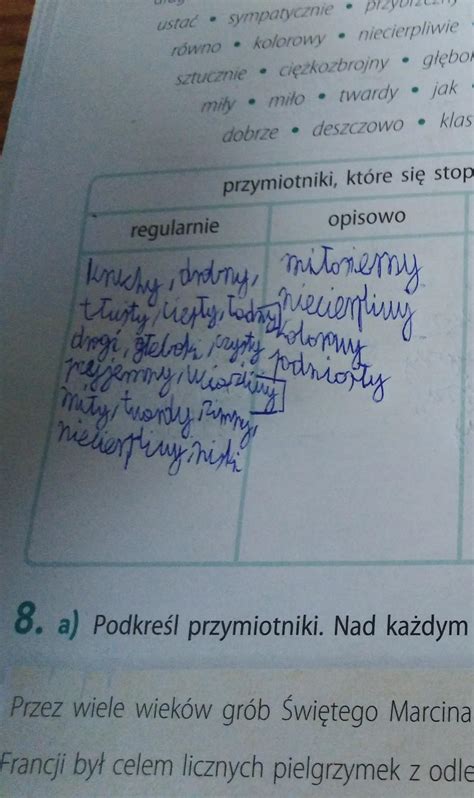 ustać • sympatycznie •
równo • kolorowy • niecierpliwie
sztucznie • ciężkozbrojny •
miły • miło • twardy • jak
dobrze • deszczowo • klas
przymiotniki, które się stop
regularnie
opisowo
kruchy, drobny,
tłusty, ciepły, ładny
drogi, głęboki, czysty
przyjemny,
miły, twardy, zimny,
niecierpliwy, niski
miłosierny
niecierpliwy
kolorowy
podniosły
8. a) Podkreśl przymiotniki. Nad każdym
Przez wiele wieków grób Świętego Marcina
Francji był celem licznych pielgrzymek z odle